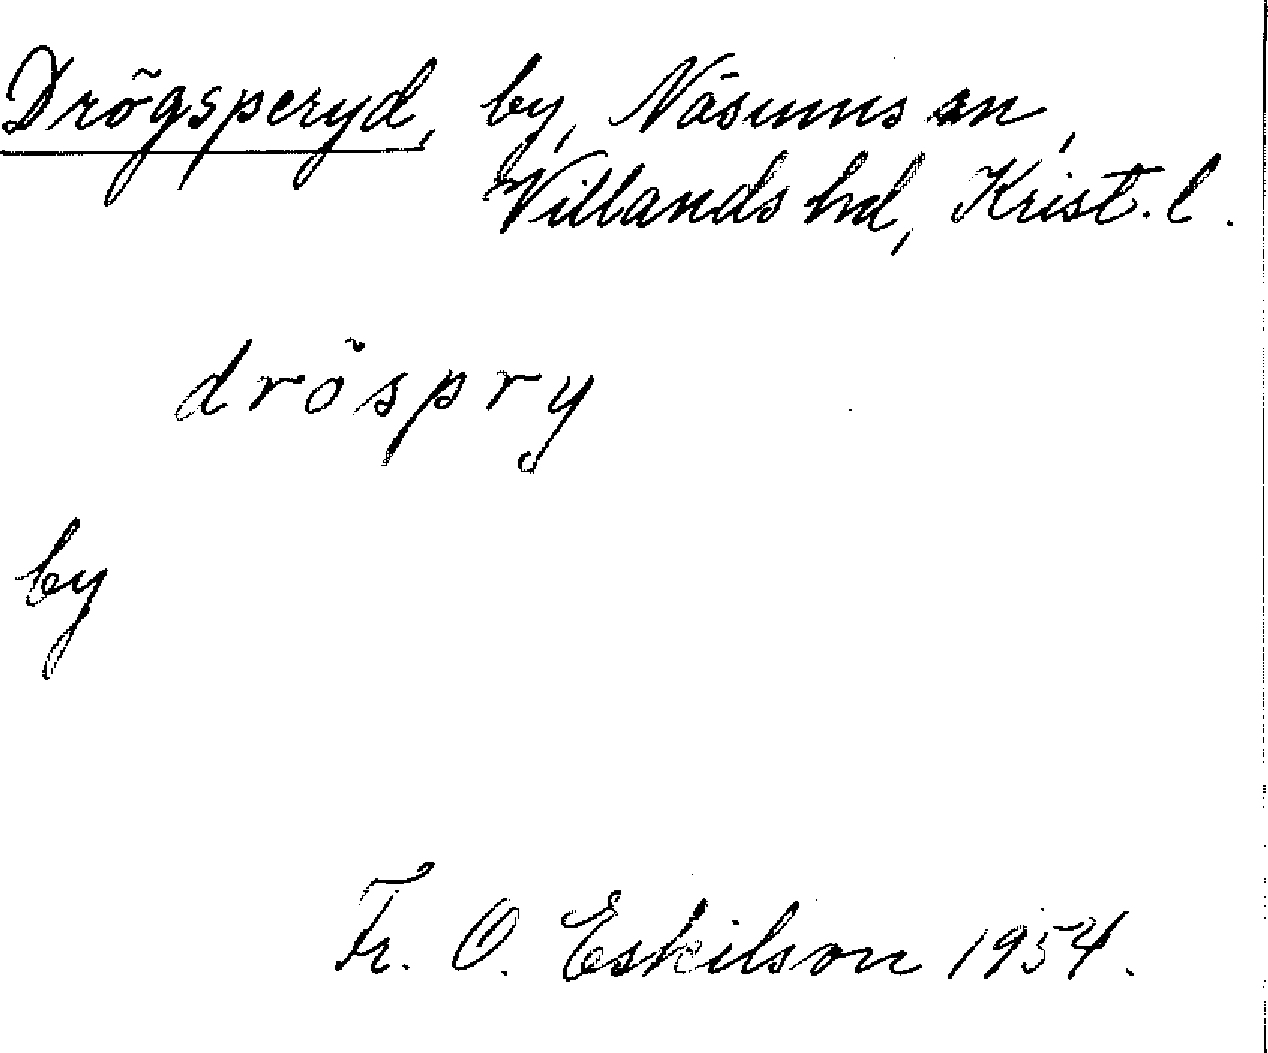 Drögsperyd, by, Näsums sn,
Villands hd, Krist. l.
dröspry
by
Fr. O. Eskilson 1954.